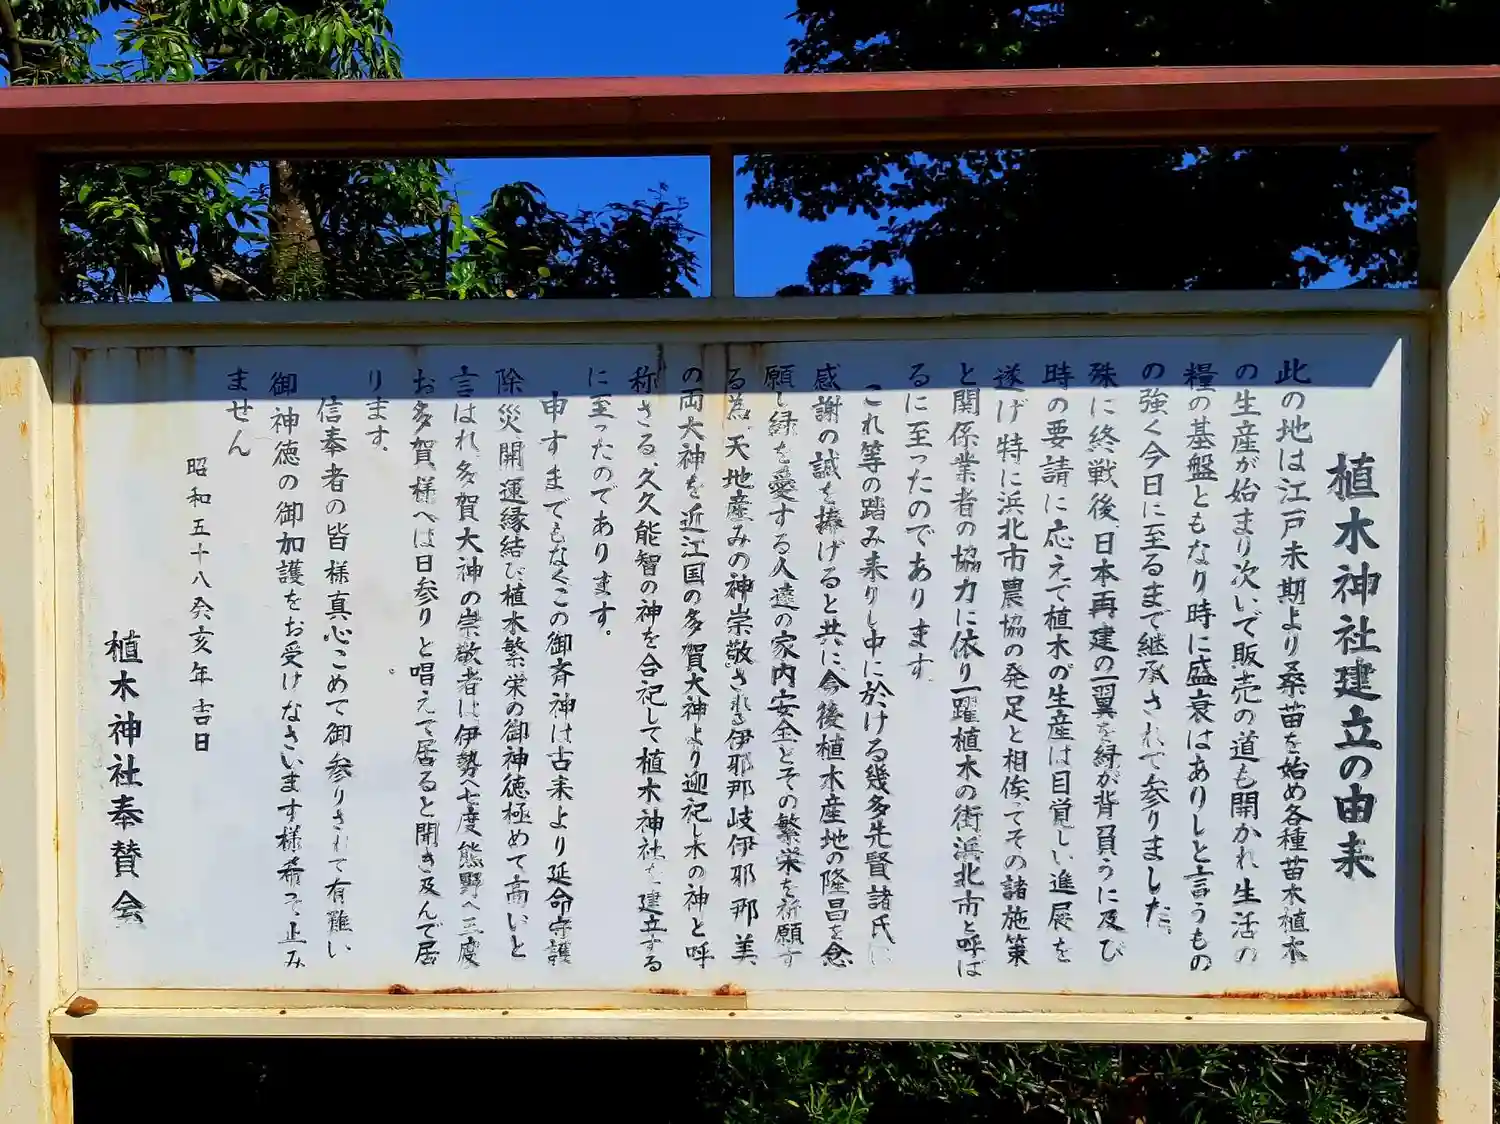 植木神社建立の由来
此の地は江戸末期より桑苗を始め各種苗木植木
の生産が始まり次いで販売の道も開かれ生活の
糧の基盤ともなり時に盛衰はありしと言うもの
の強く今日に至るまで継承されて参りました。
殊に終戦後日本再建の一翼を緑が背負うに及び
時の要請に応えて植木の生産は目覚しい進展を
遂げ特に浜北市農協の発足と相俟ってその諸施策
と関係業者の協力に依り一躍植木の街浜北市と呼ば
るに至ったのであります。
これ等の踏み来りし中に於ける幾多先賢諸氏に
感謝の誠を捧げると共に今後植木産地の隆昌を念
願し緑を愛する人達の家内安全とその繁栄を祈願す
る為、天地産みの神崇敬される伊耶那岐伊耶那美
の両大神を近江国の多賀大神より迎祀し木の神と呼
称さる、久久能智の神を合祀して植木神社を建立する
に至ったのであります。
申すまでもなくこの御斉神は古来より延命守護
除災開運縁結び植木繁栄の御神徳極めて高いと
言はれ多賀大神の崇敬者は伊勢へ七度熊野へ三度
お多賀様へは日参りと唱えて居ると聞き及んで居
ります。
信奉者の皆様真心こめて御参りされて有難い
御神徳の御加護をお受けなさいます様希って止み
ません
昭和五十八癸亥年吉日
植木神社奉賛会